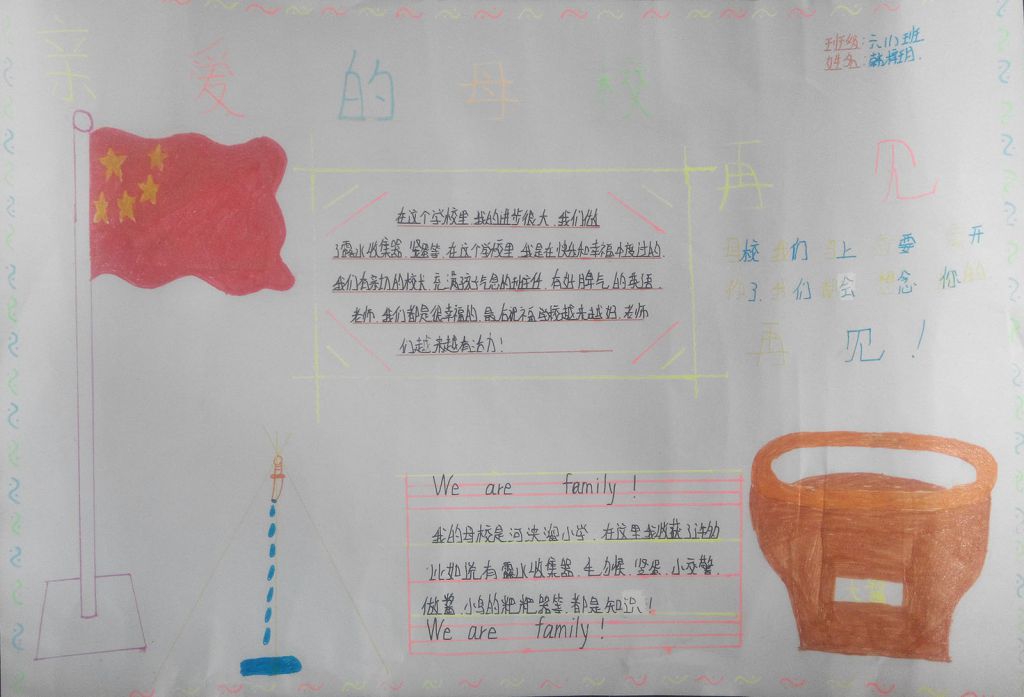 亲爱的母校
班级:六(1)班
姓名:韩梓玥.
再见
在这个学校里 我的进步很大.我们做
了露水收集器.竖蛋等.在这个学校里.我是在快乐和幸福中度过的.
我们有亲切的校长.充满孩子气息的班主任.有好脾气的英语
老师.我们都是很幸福的.最后祝福学校越走越好.老师
们越来越有活力!
母校我们马上要离开
你了.我们都会想念你的
再见!
We are family!
我的母校是河泱湖小学.在这里我收获了许多
比如说有露水收集器.毛力候.竖蛋.小交警.
做酱.小鸟的粑粑器等.都是知识!
We are family!